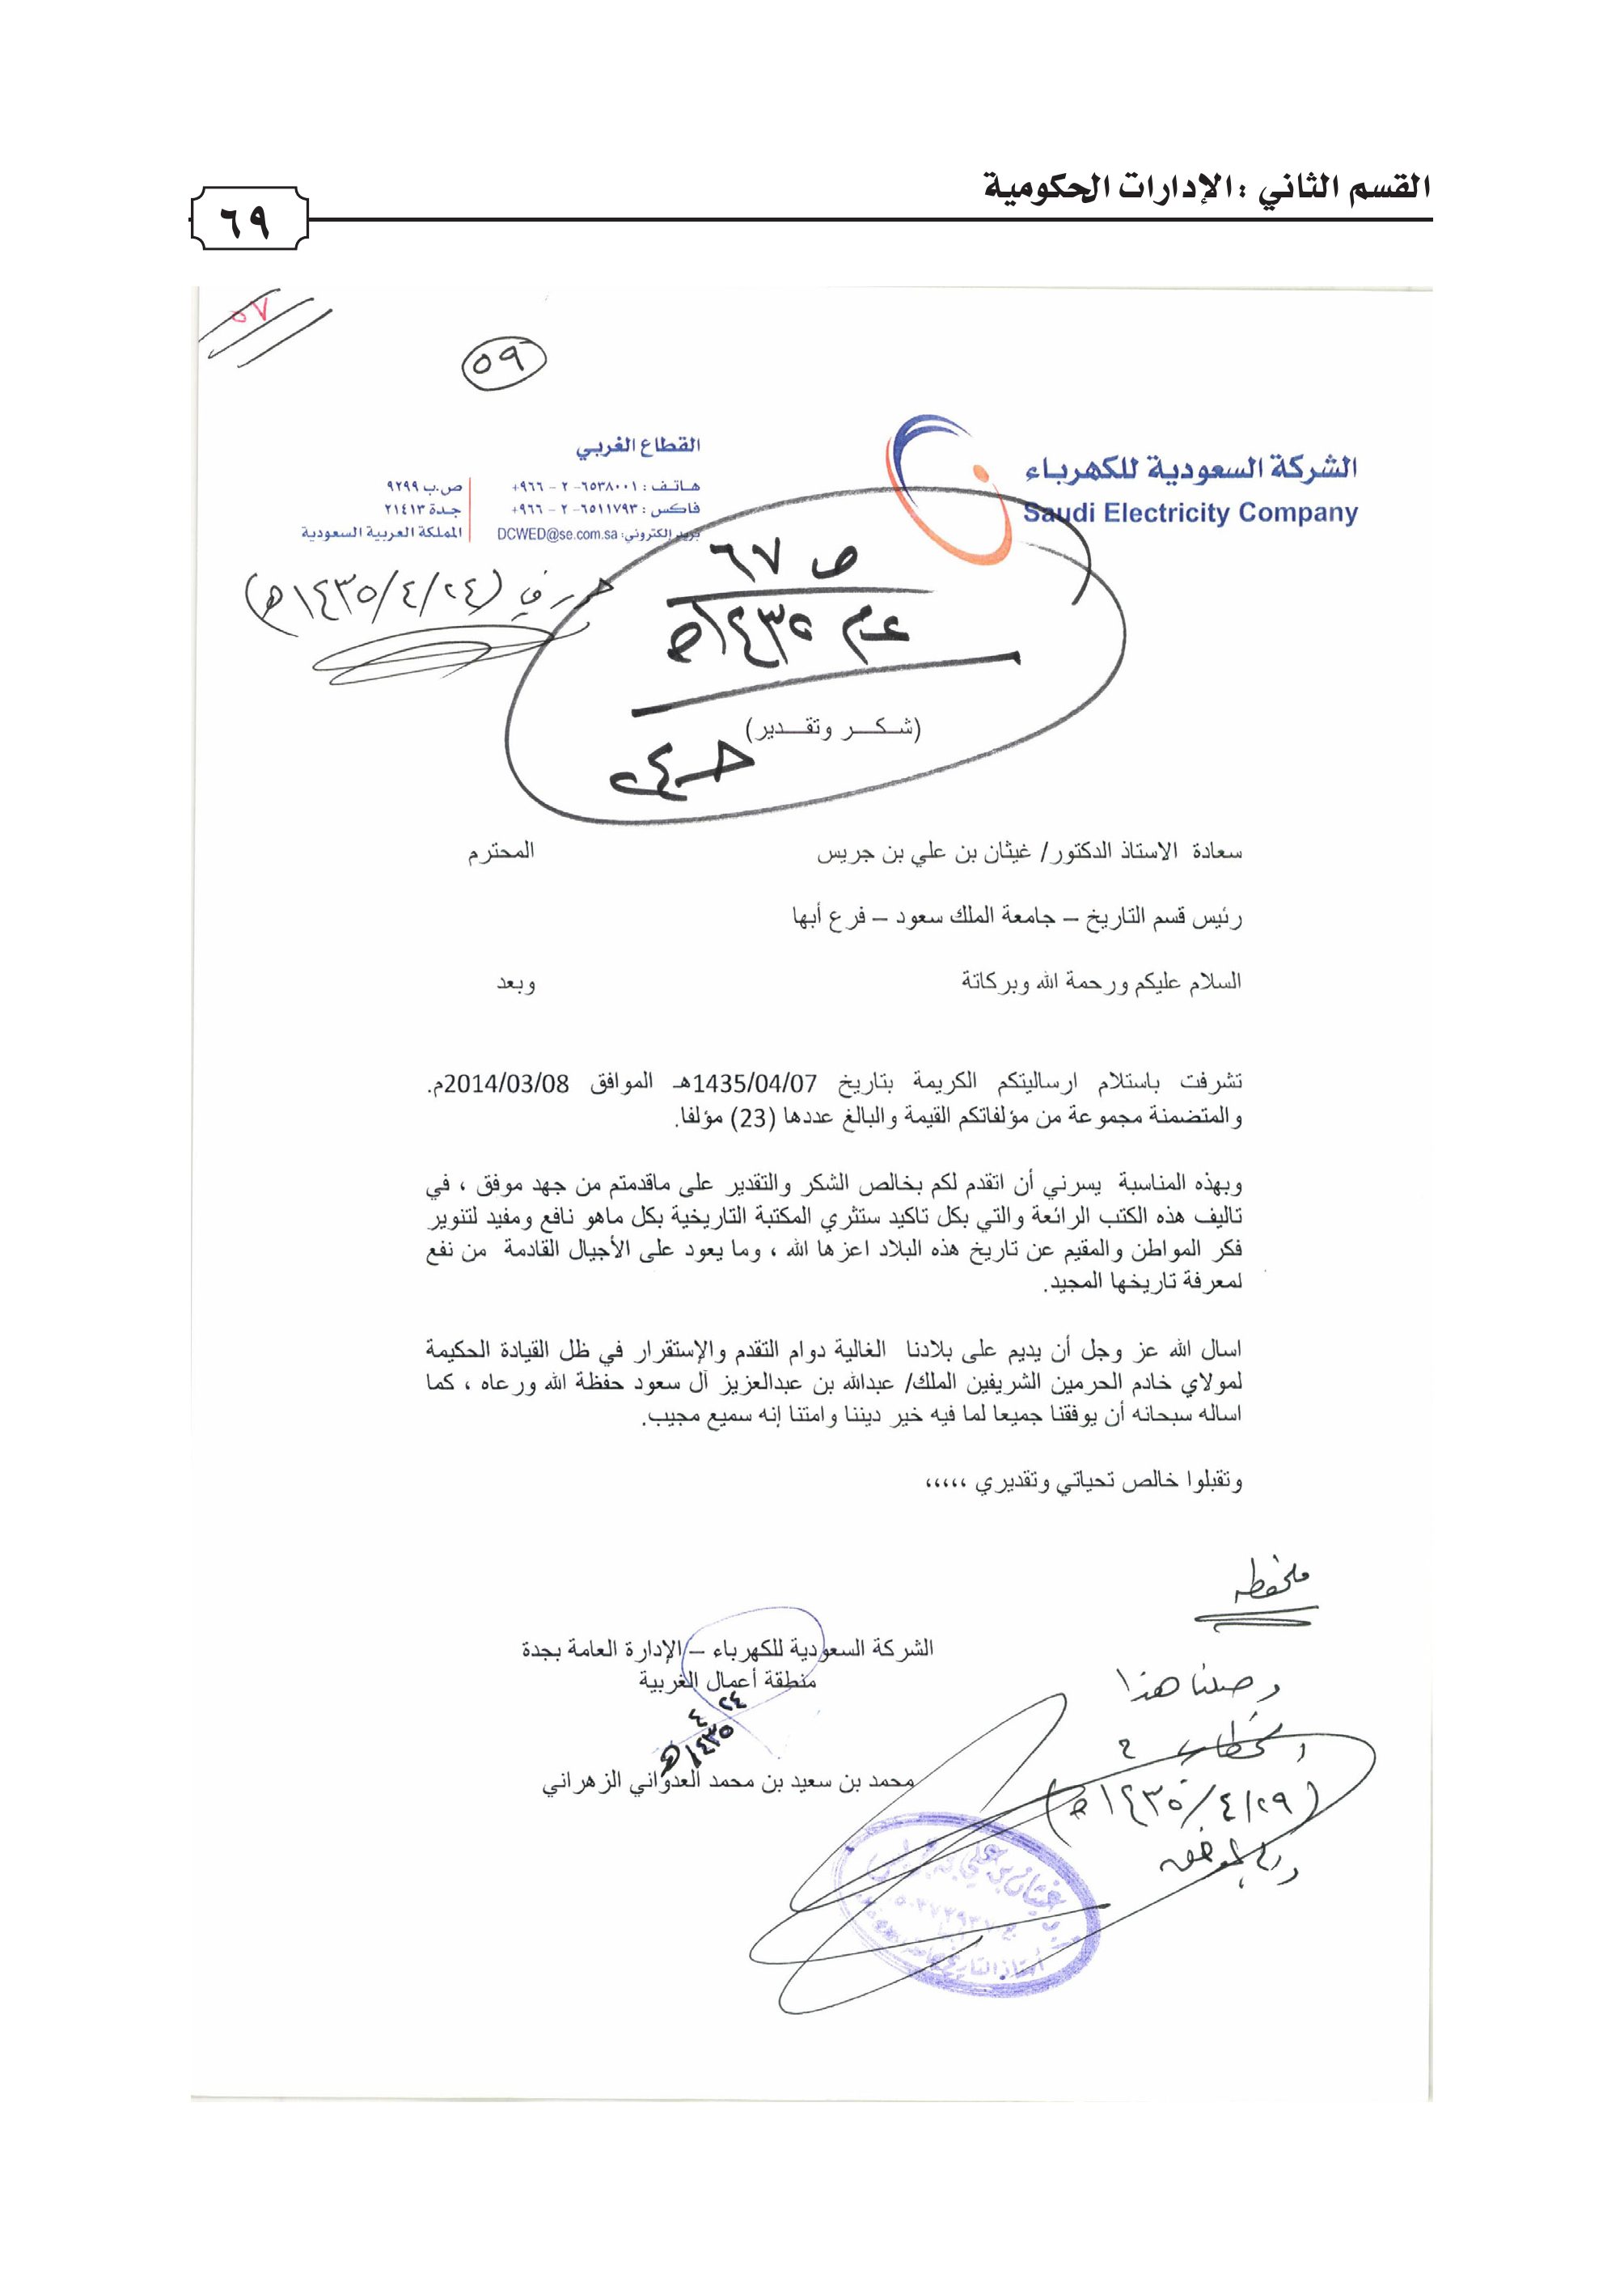 القسم الثاني : الإدارات الحكومية
٦٩
٥٧
٥٩
الشركة السعودية للكهرباء
Saudi Electricity Company
القطاع الغربي
هـاتـف : ٦٥٣٨٠٠١- ٢ - ٩٦٦+
فاكس : ٦٥١١٧٩٣- ٢ - ٩٦٦+
بريد إلكتروني: DCWED@se.com.sa
ص.ب ٩٢٩٩
جدة ٢١٤١٣
المملكة العربية السعودية
حرر في (١٤٣٥/٤/٢٤هـ)
ص ٦٧
عام ١٤٣٥هـ
(شـكـــر وتقـــدير)
حـ٢٤
سعادة الاستاذ الدكتور/ غيثان بن علي بن جريس المحترم
رئيس قسم التاريخ – جامعة الملك سعود – فرع أبها
السلام عليكم ورحمة الله وبركاتة وبعد
تشرفت باستلام ارساليتكم الكريمة بتاريخ 1435/04/07هـ الموافق 2014/03/08م.
والمتضمنة مجموعة من مؤلفاتكم القيمة والبالغ عددها (23) مؤلفا.
وبهذه المناسبة يسرني أن اتقدم لكم بخالص الشكر والتقدير على ماقدمتم من جهد موفق ، في
تاليف هذه الكتب الرائعة والتي بكل تاكيد ستثري المكتبة التاريخية بكل ماهو نافع ومفيد لتنوير
فكر المواطن والمقيم عن تاريخ هذه البلاد اعزها الله ، وما يعود على الأجيال القادمة من نفع
لمعرفة تاريخها المجيد.
اسال الله عز وجل أن يديم على بلادنا الغالية دوام التقدم والإستقرار في ظل القيادة الحكيمة
لمولاي خادم الحرمين الشريفين الملك/ عبدالله بن عبدالعزيز آل سعود حفظة الله ورعاه ، كما
اساله سبحانه أن يوفقنا جميعا لما فيه خير ديننا وامتنا إنه سميع مجيب.
وتقبلوا خالص تحياتي وتقديري ،،،،،
ملحوظة
وصلنا هذا
الخطاب في
(١٤٣٥/٤/٢٩هـ)
والله الموفق
الشركة السعودية للكهرباء – الإدارة العامة بجدة
منطقة أعمال الغربية
٢٤
٤
١٤٣٥هـ
محمد بن سعيد بن محمد العدواني الزهراني
غيثان بن علي بن
أستاذ التاريخ